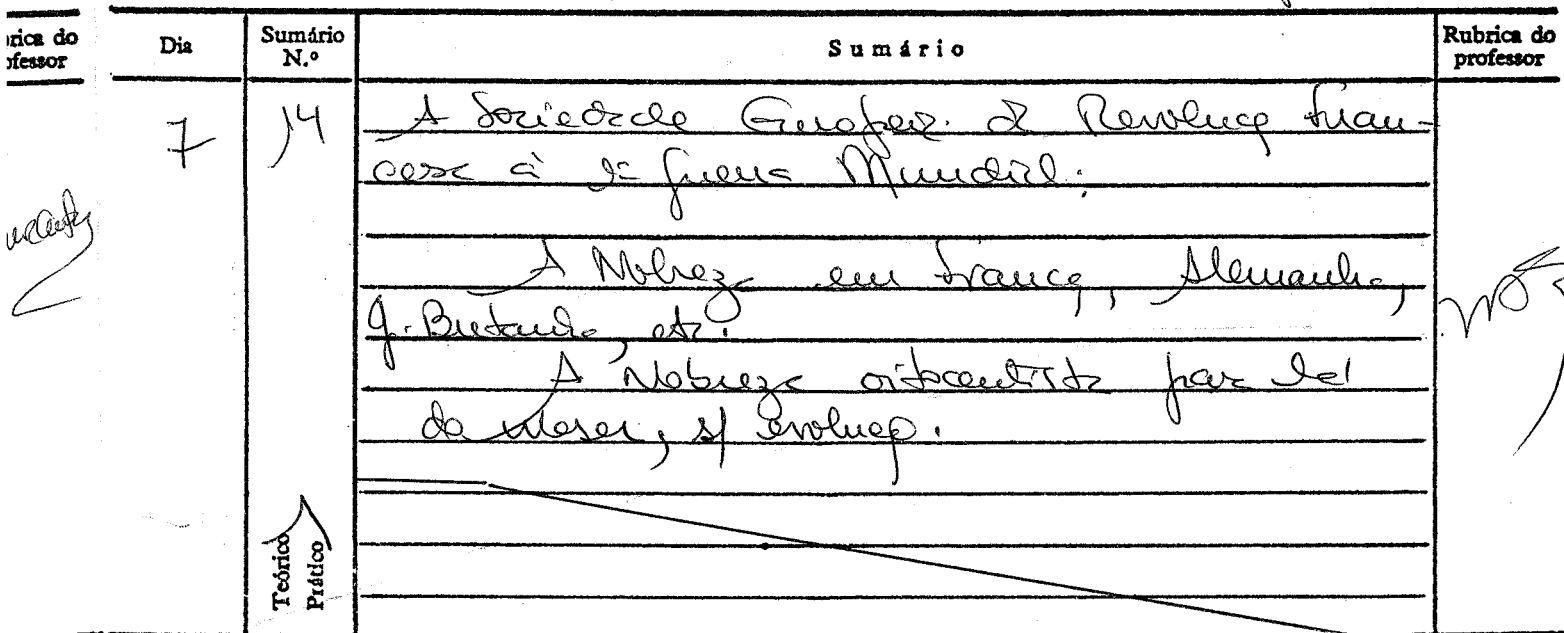 rica do
ofessor
Dia
Sumário
N.º
Sumário
Rubrica do
professor
7
14
A Sociedade Europeia. da Revoluçao Fran-
cesa à 1ª Guerra Mundial:
A Nobreza em França, Alemanha,
G. Bretanha, etc.
A Nobreza oitocentista
s/ evoluçao.
Teórico
Prático